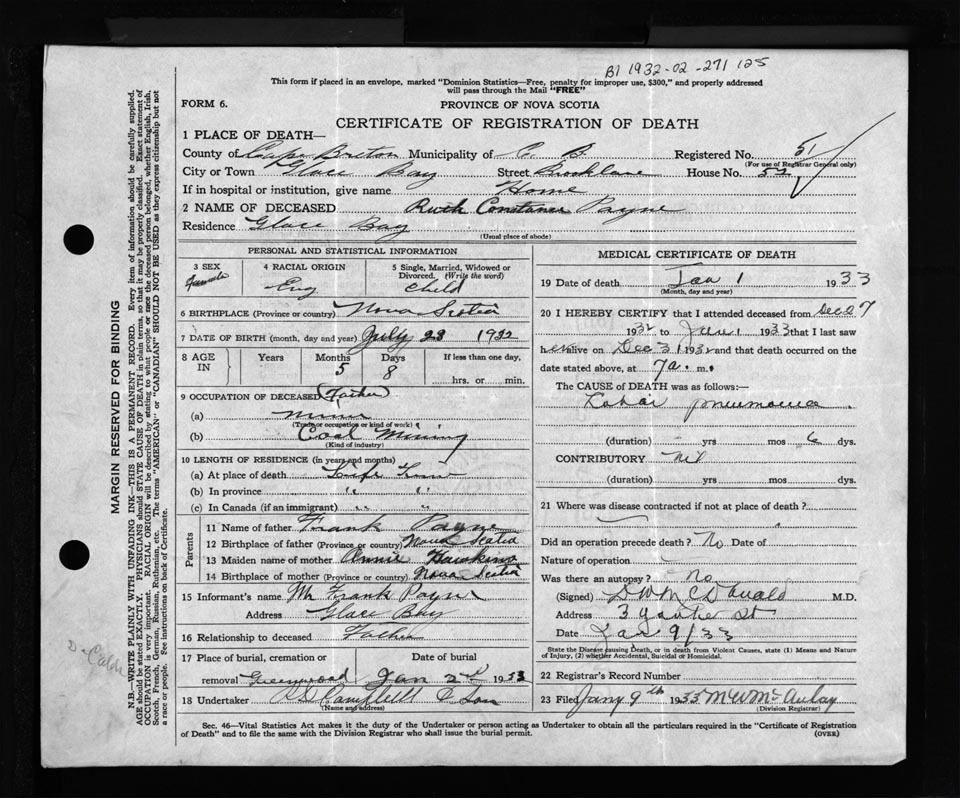 B1 1932-02-271125
This form if placed in an envelope, marked "Dominion Statistics—Free, penalty for improper use, $300," and properly addressed
will pass through the Mail "FREE"
FORM 6.
PROVINCE OF NOVA SCOTIA
CERTIFICATE OF REGISTRATION OF DEATH
1 PLACE OF DEATH—
County of Cape Breton Municipality of C. B. Registered No. 51
(For use of Registrar General only)
City or Town Glace Bay Street Brooklane House No. 52
If in hospital or institution, give name Home
2 NAME OF DECEASED Ruth Constance Payne
Residence Glace Bay
(Usual place of abode)
PERSONAL AND STATISTICAL INFORMATION
3 SEX Female
4 RACIAL ORIGIN Eng
5 Single, Married, Widowed or Divorced. (Write the word) Child
6 BIRTHPLACE (Province or country) Nova Scotia
7 DATE OF BIRTH (month, day and year) July 23 1932
8 AGE IN Years Months 5 Days 8 If less than one day, hrs. or min.
9 OCCUPATION OF DECEASED Father
(a) Miner
(Trade or occupation or kind of work)
(b) Coal Mining
(Kind of industry)
10 LENGTH OF RESIDENCE (in years and months)
(a) At place of death Life Time
(b) In province " "
(c) In Canada (if an immigrant) " "
Parents
11 Name of father Frank Payne
12 Birthplace of father (Province or country) Nova Scotia
13 Maiden name of mother Annie Hawkins
14 Birthplace of mother (Province or country) Nova Scotia
15 Informant's name Mr Frank Payne
Address Glace Bay
16 Relationship to deceased Father
17 Place of burial, cremation or removal Greenwood Date of burial Jan 2nd 1933
18 Undertaker Campbell & Son
(Name and address)
MEDICAL CERTIFICATE OF DEATH
19 Date of death Jan 1 1933
(Month, day and year)
20 I HEREBY CERTIFY that I attended deceased from Dec 27
1932 to Jan 1 1933 that I last saw
her alive on Dec 31 1932 and that death occurred on the
date stated above, at 7 a. m.
The CAUSE OF DEATH was as follows:—
Lobar pneumonia
(duration) yrs mos 6 dys.
CONTRIBUTORY Nil
(duration) yrs mos dys.
21 Where was disease contracted if not at place of death?
Did an operation precede death? No Date of
Nature of operation
Was there an autopsy? No
(Signed) D W McDonald M.D.
Address 3 St
Date Jan 9/33
State the Disease causing Death, or in death from Violent Causes, state (1) Means and Nature
of Injury, (2) whether Accidental, Suicidal or Homicidal.
22 Registrar's Record Number
23 Filed Jany 9th 1933 M W McAulay
(Division Registrar)
Sec. 46—Vital Statistics Act makes it the duty of the Undertaker or person acting as Undertaker to obtain all the particulars required in the "Certificate of Registration
of Death" and to file the same with the Division Registrar who shall issue the burial permit.
(OVER)
MARGIN RESERVED FOR BINDING
N.B.—WRITE PLAINLY WITH UNFADING INK—THIS IS A PERMANENT RECORD. Every item of information should be carefully supplied.
AGE should be stated EXACTLY. PHYSICIANS should STATE CAUSE OF DEATH in plain terms, so that it may be properly classified. Exact statement of
OCCUPATION is very important. RACIAL ORIGIN will be described by stating to what people or race the deceased person belonged, whether English, Irish,
Scotch, French, German, Russian, Ruthenian, etc. The terms "AMERICAN" or "CANADIAN" SHOULD NOT BE USED as they express citizenship but not
a race or people. See instructions on back of Certificate.